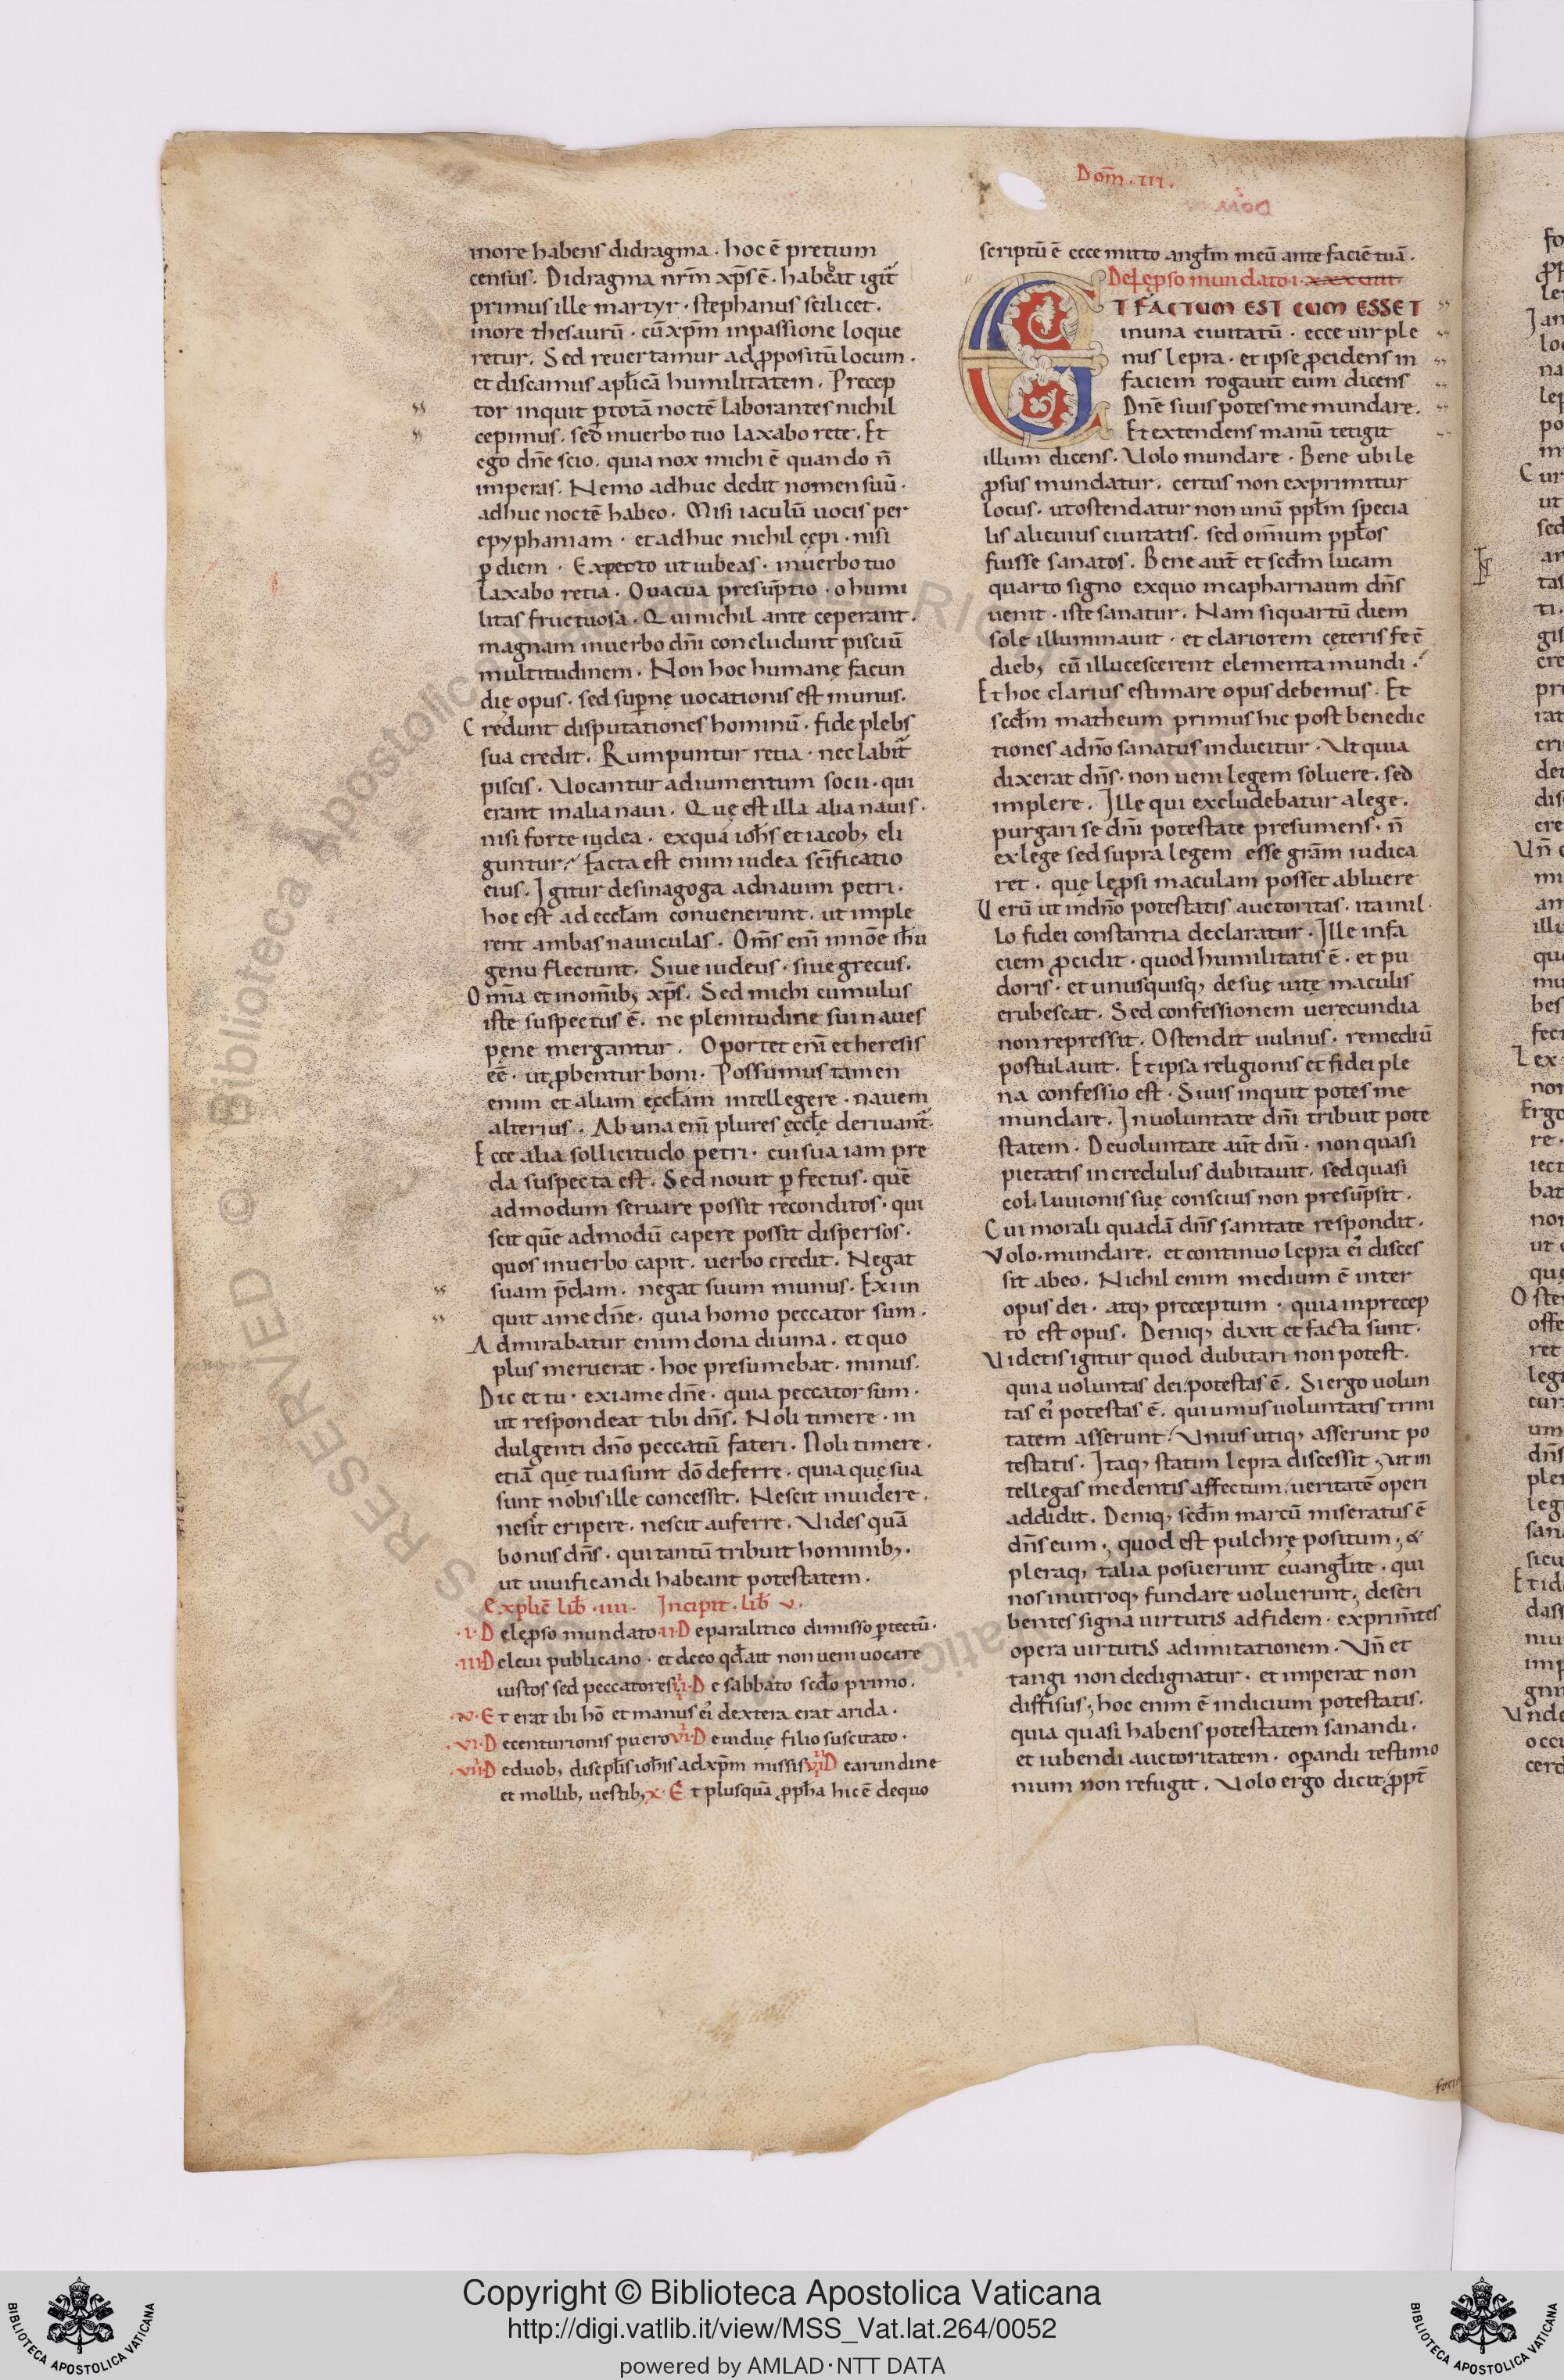 Dom̄ · III ·
more habens didragma · hoc ē pretium
census · Didragma nrm̄ xp̄s ē · habeat igit̃
primus ille martyr · stephanus scilicet ·
more thesaurū · cū xp̄m inpassione loque
retur · Sed reuertamur ad ꝓpositū locum ·
et discamus apłicā humilitatem · Precep
tor inquit ꝑ totā noctē laborantes nichil
cepimus · sed inuerbo tuo laxabo rete · Et
ego dn̄e scio · quia nox michi ē quando n̄
imperas · Nemo adhuc dedit nomen suū ·
adhuc noctē habeo · Misi iaculū uocis per
epyphaniam · et adhuc nichil cępi · nisi
ꝑ diem · Expecto ut iubeas · inuerbo tuo
laxabo retia · O uacua presūptio · o humi
litas fructuosa · Qui nichil ante ceperant ·
magnam inuerbo dn̄i concludunt pisciū
multitudinem · Non hoc humanę facun
dię opus · sed suꝑnę uocationis est munus ·
Credunt disputationes hominū · fide plebs
sua credit · Rumpuntur retia · nec labit̃
piscis · Uocantur adiumentum socii · qui
erant in alia naui · Quę est illa alia nauis ·
nisi forte iudea · exqua ioh̄s et iacobꝫ eli
guntur · facta est enim iudea sc̄ificatio
eius · Igitur desinagoga adnauim petri ·
hoc est ad eccłam conuenerunt · ut imple
rent ambas nauiculas · Om̄s enī innōe ih̄u
genu flectunt · Siue iudeus · siue grecus ·
Omīa et inomībꝫ xp̄s · Sed michi cumulus
iste suspectus ē · ne plenitudine sui naues
pęne mergantur · Oportet enī et heresis
eē · ut ꝓbentur boni · Possumus tamen
enim et aliam ęccłam intellegere · nauem
alterius · Ab una enī plures ęccłę deriuant̃ ·
Ecce alia sollicitudo petri · cui sua iam pre
da suspecta est · Sed nouit ꝑfectus · quē
admodum seruare possit reconditos · qui
scit quē admodū capere possit dispersos ·
quos inuerbo capit · uerbo credit · Negat
suam p̄dam · negat suum munus · Exi in
quit ame dn̄e · quia homo peccator sum ·
Admirabatur enim dona diuina · et quo
plus meruerat · hoc presumebat · minus ·
Dic et tu · exi ame dn̄e · quia peccator sum ·
ut respondeat tibi dn̄s · Noli timere · in
dulgenti dn̄o peccatū fateri · Noli timere ·
etiā quę tua sunt dō deferre · quia quę sua
sunt nobis ille concessit · Nescit inuidere ·
nescit eripere · nescit auferre · Uides quā
bonus dn̄s · qui tantū tribuit hominibꝫ ·
ut uiuificandi habeant potestatem ·
Explic̄ lib̄ · IIII · Incipit · lib̄ V ·
· I · De lepso mundato · II · De paralitico dimisso ꝑ tectū ·
· III · De leui publicano · et deeo qđ ait non ueni uocare
iustos sed peccatores · IIII · De sabbato scđo primo ·
· V · Et erat ibi hō et manus eī dextera erat arida ·
· VI · De centurionis puero · VII · De uiduę filio suscitato ·
· VIII · De duobꝫ discipłis ioh̄is ad xp̄m missis · VIIII · De arundine
et mollibꝫ uestibꝫ · X · Et plusquā ꝓph̄a hic ē dequo
scriptū ē ecce mitto angłm meū ante faciē tuā ·
De lepso mundato · I · XXXVIIII ·
ET FACTUM EST CUM ESSET
inuna ciuitatū · ecce uir ple
nus lepra · et ipse ꝓcidens in
faciem rogauit eum dicens
Dn̄e si uis potes me mundare ·
Et extendens manū tetigit
illum dicens · Uolo mundare · Bene ubi le
ꝓsus mundatur · certus non exprimitur
locus · ut ostendatur non unū ppłm specia
lis alicuius ciuitatis · sed omīum ppłos
fuisse sanatos · Bene aut̄ et scđm lucam
quarto signo exquo incapharnaum dn̄s
uenit · iste sanatur · Nam si quartū diem
sole illuminauit · et clariorem cęteris fec̄
diebꝫ cū illucescerent elementa mundi ·
Et hoc clarius estimare opus debemus · Et
scđm matheum primus hic post benedic
tiones adn̄o sanatus inducitur · Ut quia
dixerat dn̄s · non ueni legem soluere · sed
implere · Ille qui excludebatur alege ·
purgari se dn̄i potestate presumens · n̄
exlege sed supra legem esse grām iudica
ret · quę leꝓsi maculam posset abluere
Uerū ut indn̄o potestatis auctoritas · ita nil ·
lo fidei constantia declaratur · Ille infa
ciem ꝓcidit · quod humilitatis ē · et pu
doris · et unusquisqꝫ de suę uitę maculis
erubescat · Sed confessionem uerecundia
non repressit · Ostendit uulnus · remediū
postulauit · Et ipsa religionis et fidei ple
na confessio est · Si uis inquit potes me
mundare · Inuoluntate dn̄i tribuit pote
statem · De uoluntate aūt dn̄i · non quasi
pietatis incredulus dubitauit · sed quasi
colluuionis suę conscius non presūpsit ·
Cui morali quadā dn̄s sanitate respondit ·
Uolo · mundare · et continuo lepra eī disces
sit abeo · Nichil enim medium ē inter
opus dei · atqꝫ preceptum · quia inprecep
to est opus · Deniqꝫ dixit et facta sunt ·
Uidetis igitur quod dubitari non potest ·
quia uoluntas dei potestas ē · Si ergo uolun
tas eī potestas ē · qui unius uoluntatis trini
tatem asserunt · Unius utiqꝫ asserunt po
testatis · Itaqꝫ statim lepra discessit · ut in
tellegas medentis affectum · ueritatē operi
addidit · Deniqꝫ scđm marcū miseratus ē
dn̄s eum · quod est pulchrę positum · &
pleraqꝫ talia posuerunt euangłite · qui
nos inutroqꝫ fundare uoluerunt · descri
bentes signa uirtutis adfidem · exprim̄tes
opera uirtutis adimitationem · Un̄ et
tangi non dedignatur · et imperat non
diffisus · hoc enim ē indicium potestatis ·
quia quasi habens potestatem sanandi ·
et iubendi auctoritatem · oꝑandi testimo
nium non refugit · Uolo ergo dicit · ꝓpt̄
Copyright © Biblioteca Apostolica Vaticana
http://digi.vatlib.it/view/MSS_Vat.lat.264/0052
powered by AMLAD·NTT DATA
BIBLIOTECA APOSTOLICA VATICANA
BIBLIOTECA APOSTOLICA VATICANA